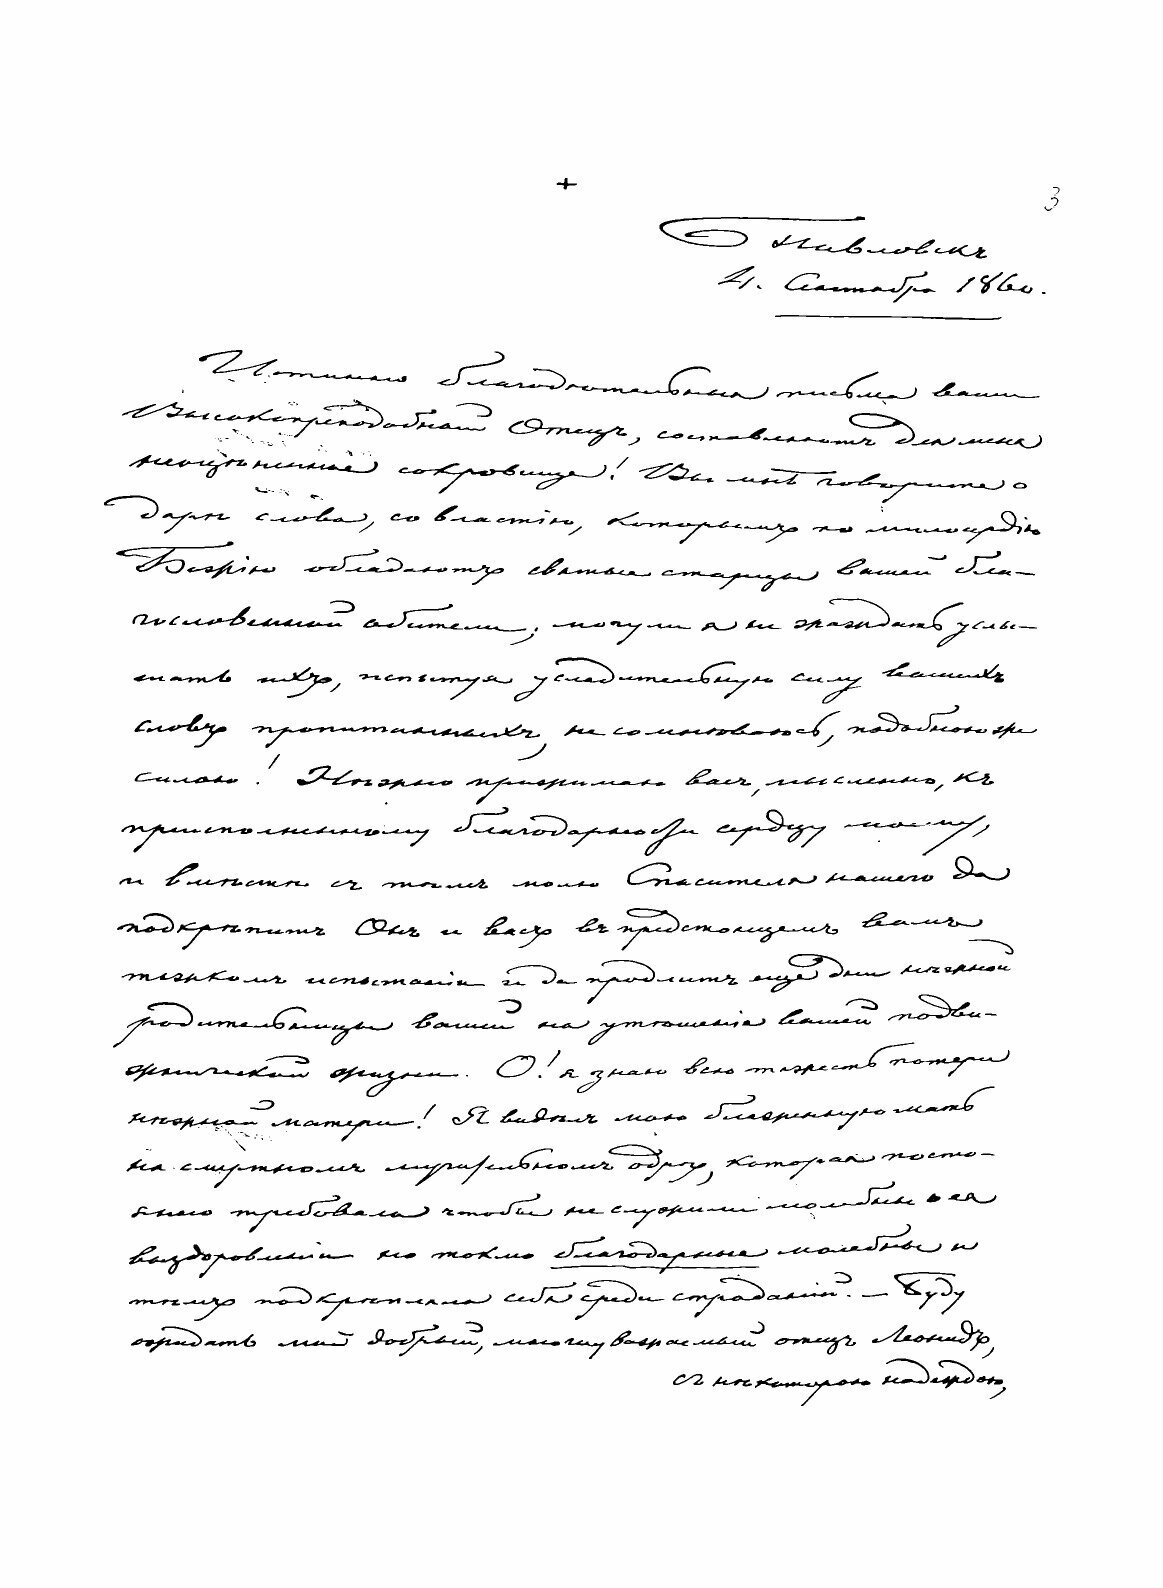 +
3
Павловскъ
4. Сентября 1860.
Истинно благодѣтельныя письма ваши
Высокопреподобный Отецъ, составляютъ для меня
неоцѣненное сокровище! Вы мнѣ говорите о
дарѣ слова, со властію, которымъ по милосердію
Божію обладаютъ святые старцы вашей бла-
гословенной обители; могу ли я не жаждать услы-
шать ихъ, испытуя усладительную силу вашихъ
словъ пропитанныхъ, не сомнѣваюсь, подобною же
силою! Нѣжно прижимаю васъ, мысленно, къ
преисполненному благодарности сердцу моему,
и вмѣстѣ съ тѣмъ молю Спасителя нашего да
подкрѣпитъ Онъ и васъ въ предстоящемъ вамъ
тяжкомъ испытаніи и да продлитъ еще дни нѣжной
родительницы вашей на утѣшеніе вашей подви-
жнической жизни. О! я знаю всю тяжесть потери
нѣжной матери! Я видѣлъ мою блаженную мать
на смертномъ мучительномъ одрѣ, которая посто-
янно требовала чтобы не служили молебны о ея
выздоровленіи но токмо благодарные молебны и
тѣмъ подкрѣпляла себя среди страданій. — Буду
ожидать мой добрый, многоуважаемый отецъ Леонидъ,
съ нѣкоторою надеждою,